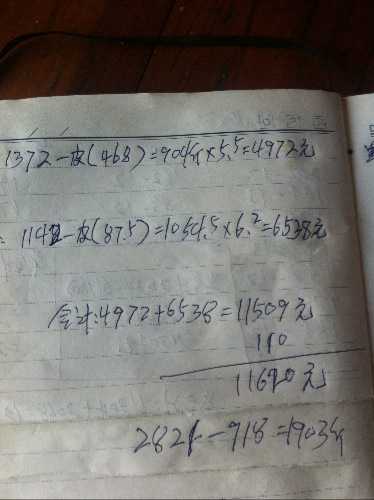 1372-皮(468)=904斤×5.5=4972元
1142-皮(87.5)=1054.5×6.2=6538元
合计:4972+6538=11509元
110
11620元
2821-918=1903斤